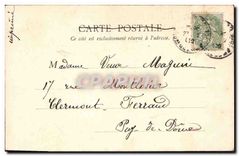 CARTE POSTALE
Ce côté est exclusivement réservé à l'adresse.
Madame Veuve Maguin
17 rue Montlosier
Clermont Ferrand
Puy de Dôme